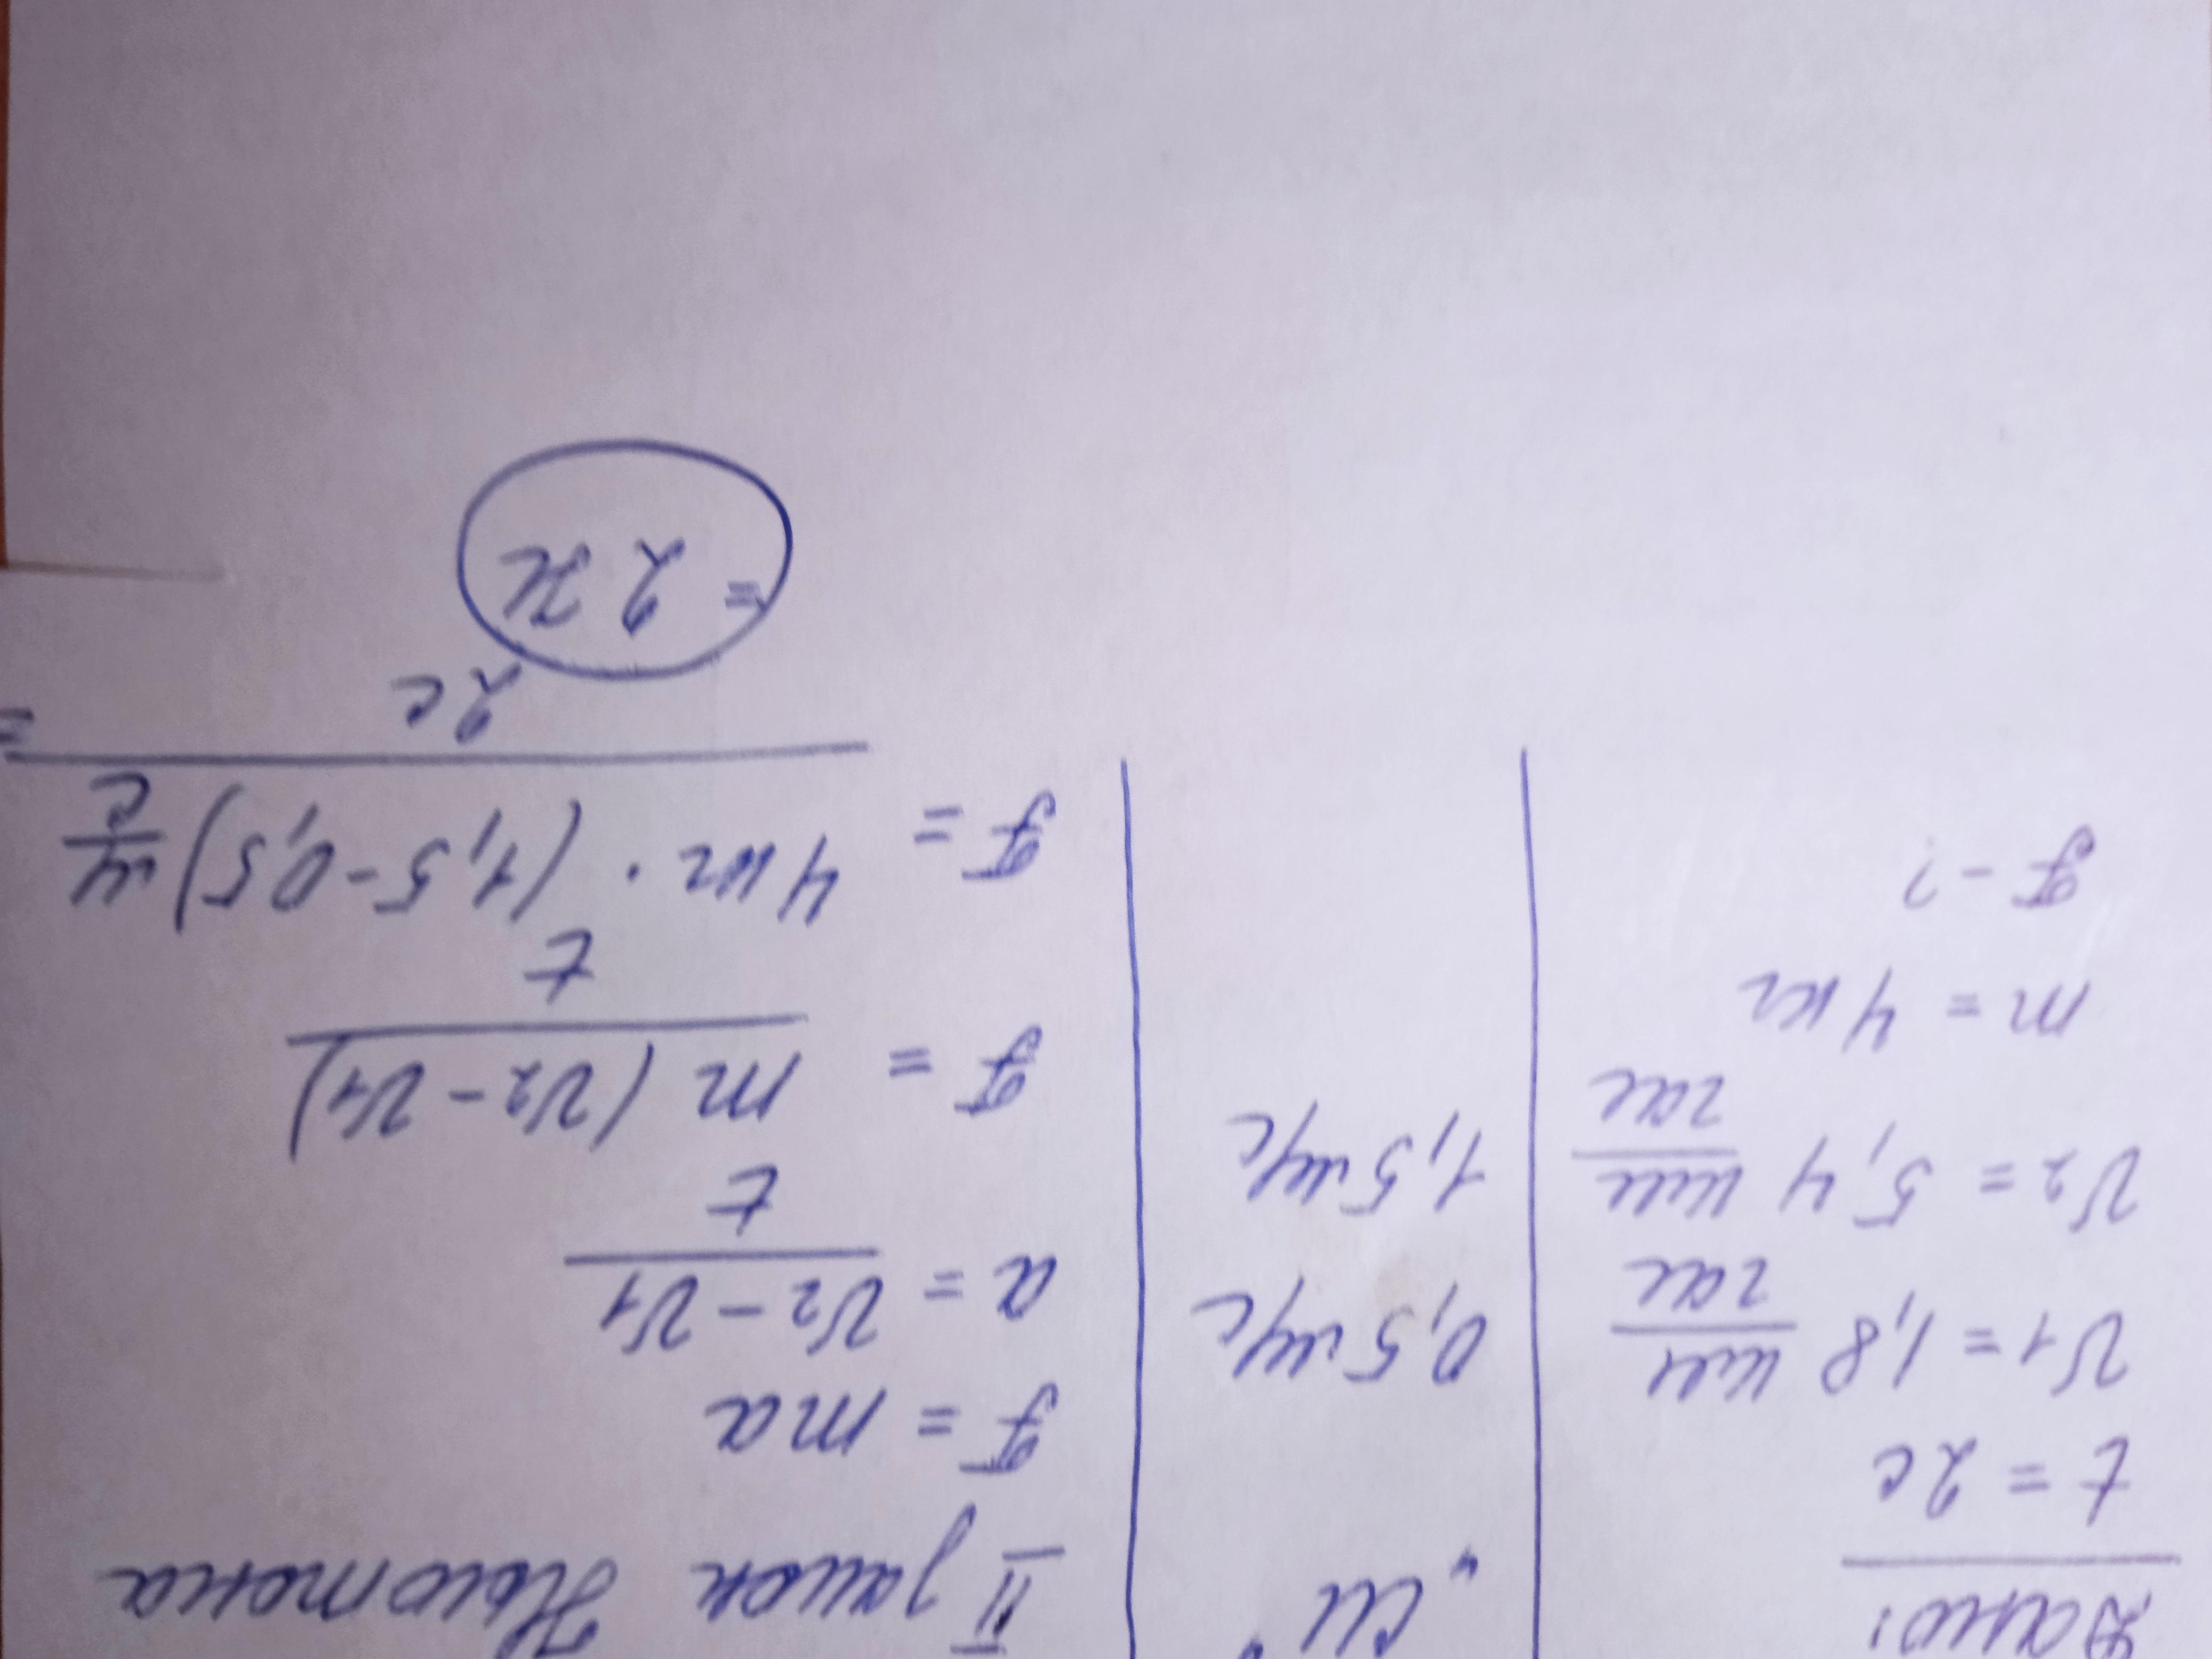 Дано:
t = 2с
v1 = 1,8 км/час
v2 = 5,4 км/час
m = 4 кг
F - ?
"СИ"
0,5 м/с
1,5 м/с
II закон Ньютона
F = ma
a = (v2 - v1) / t
F = m (v2 - v1) / t
F = 4 кг · (1,5 - 0,5) м/с / 2с =
= 2 Н